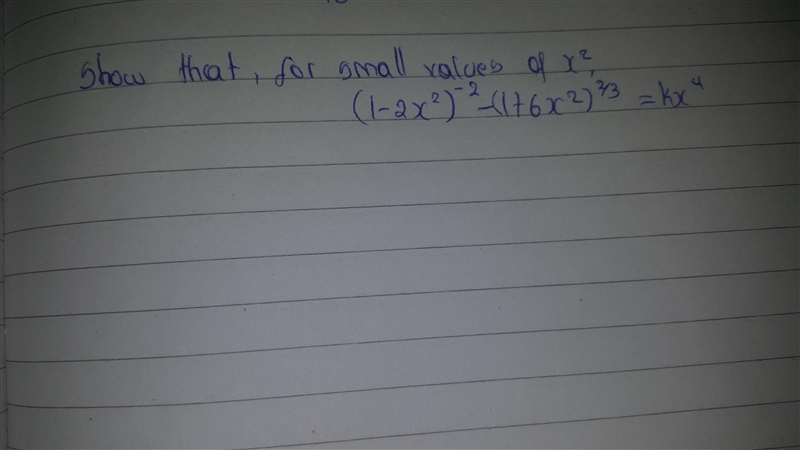 Show that, for small values of x²,
(1-2x²)⁻² -(1+6x²)^2/3 = kx⁴